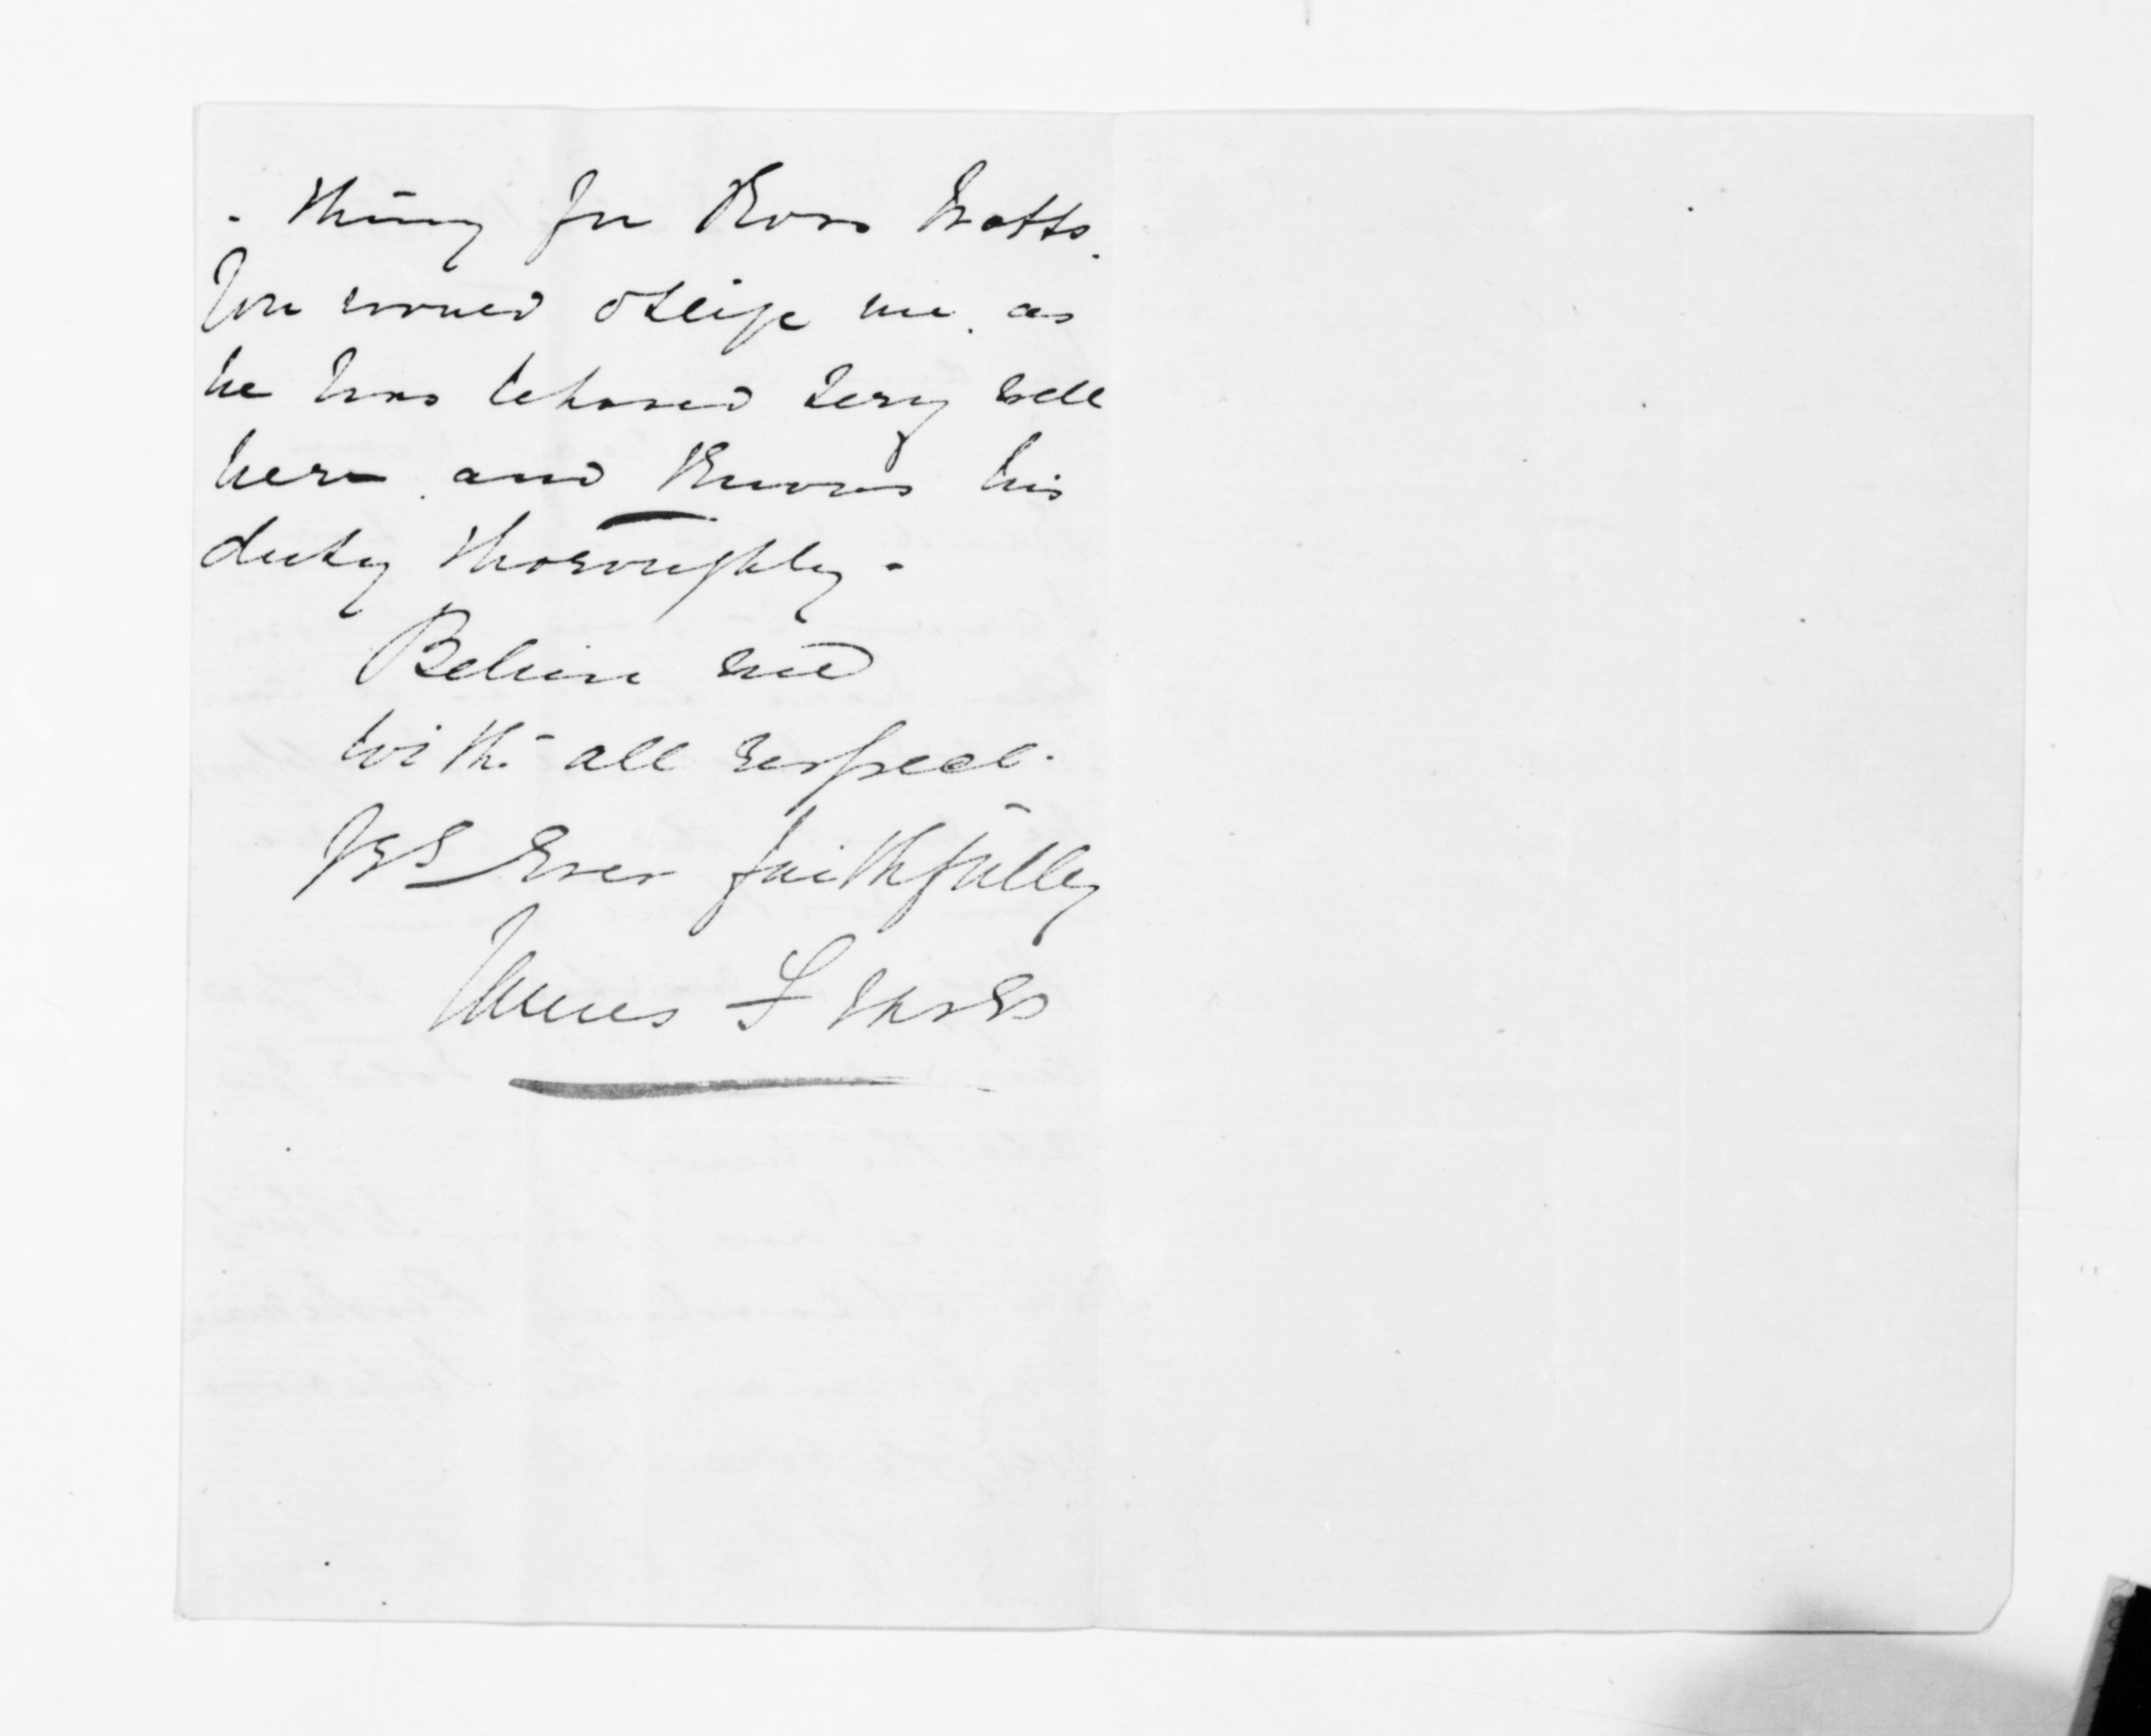 - thing for Ross Watts.
You would oblige me. as
he has behaved very well
here. and knows his
duty thoroughly.
Believe me
with all respect.
Yrs Ever faithfully
James